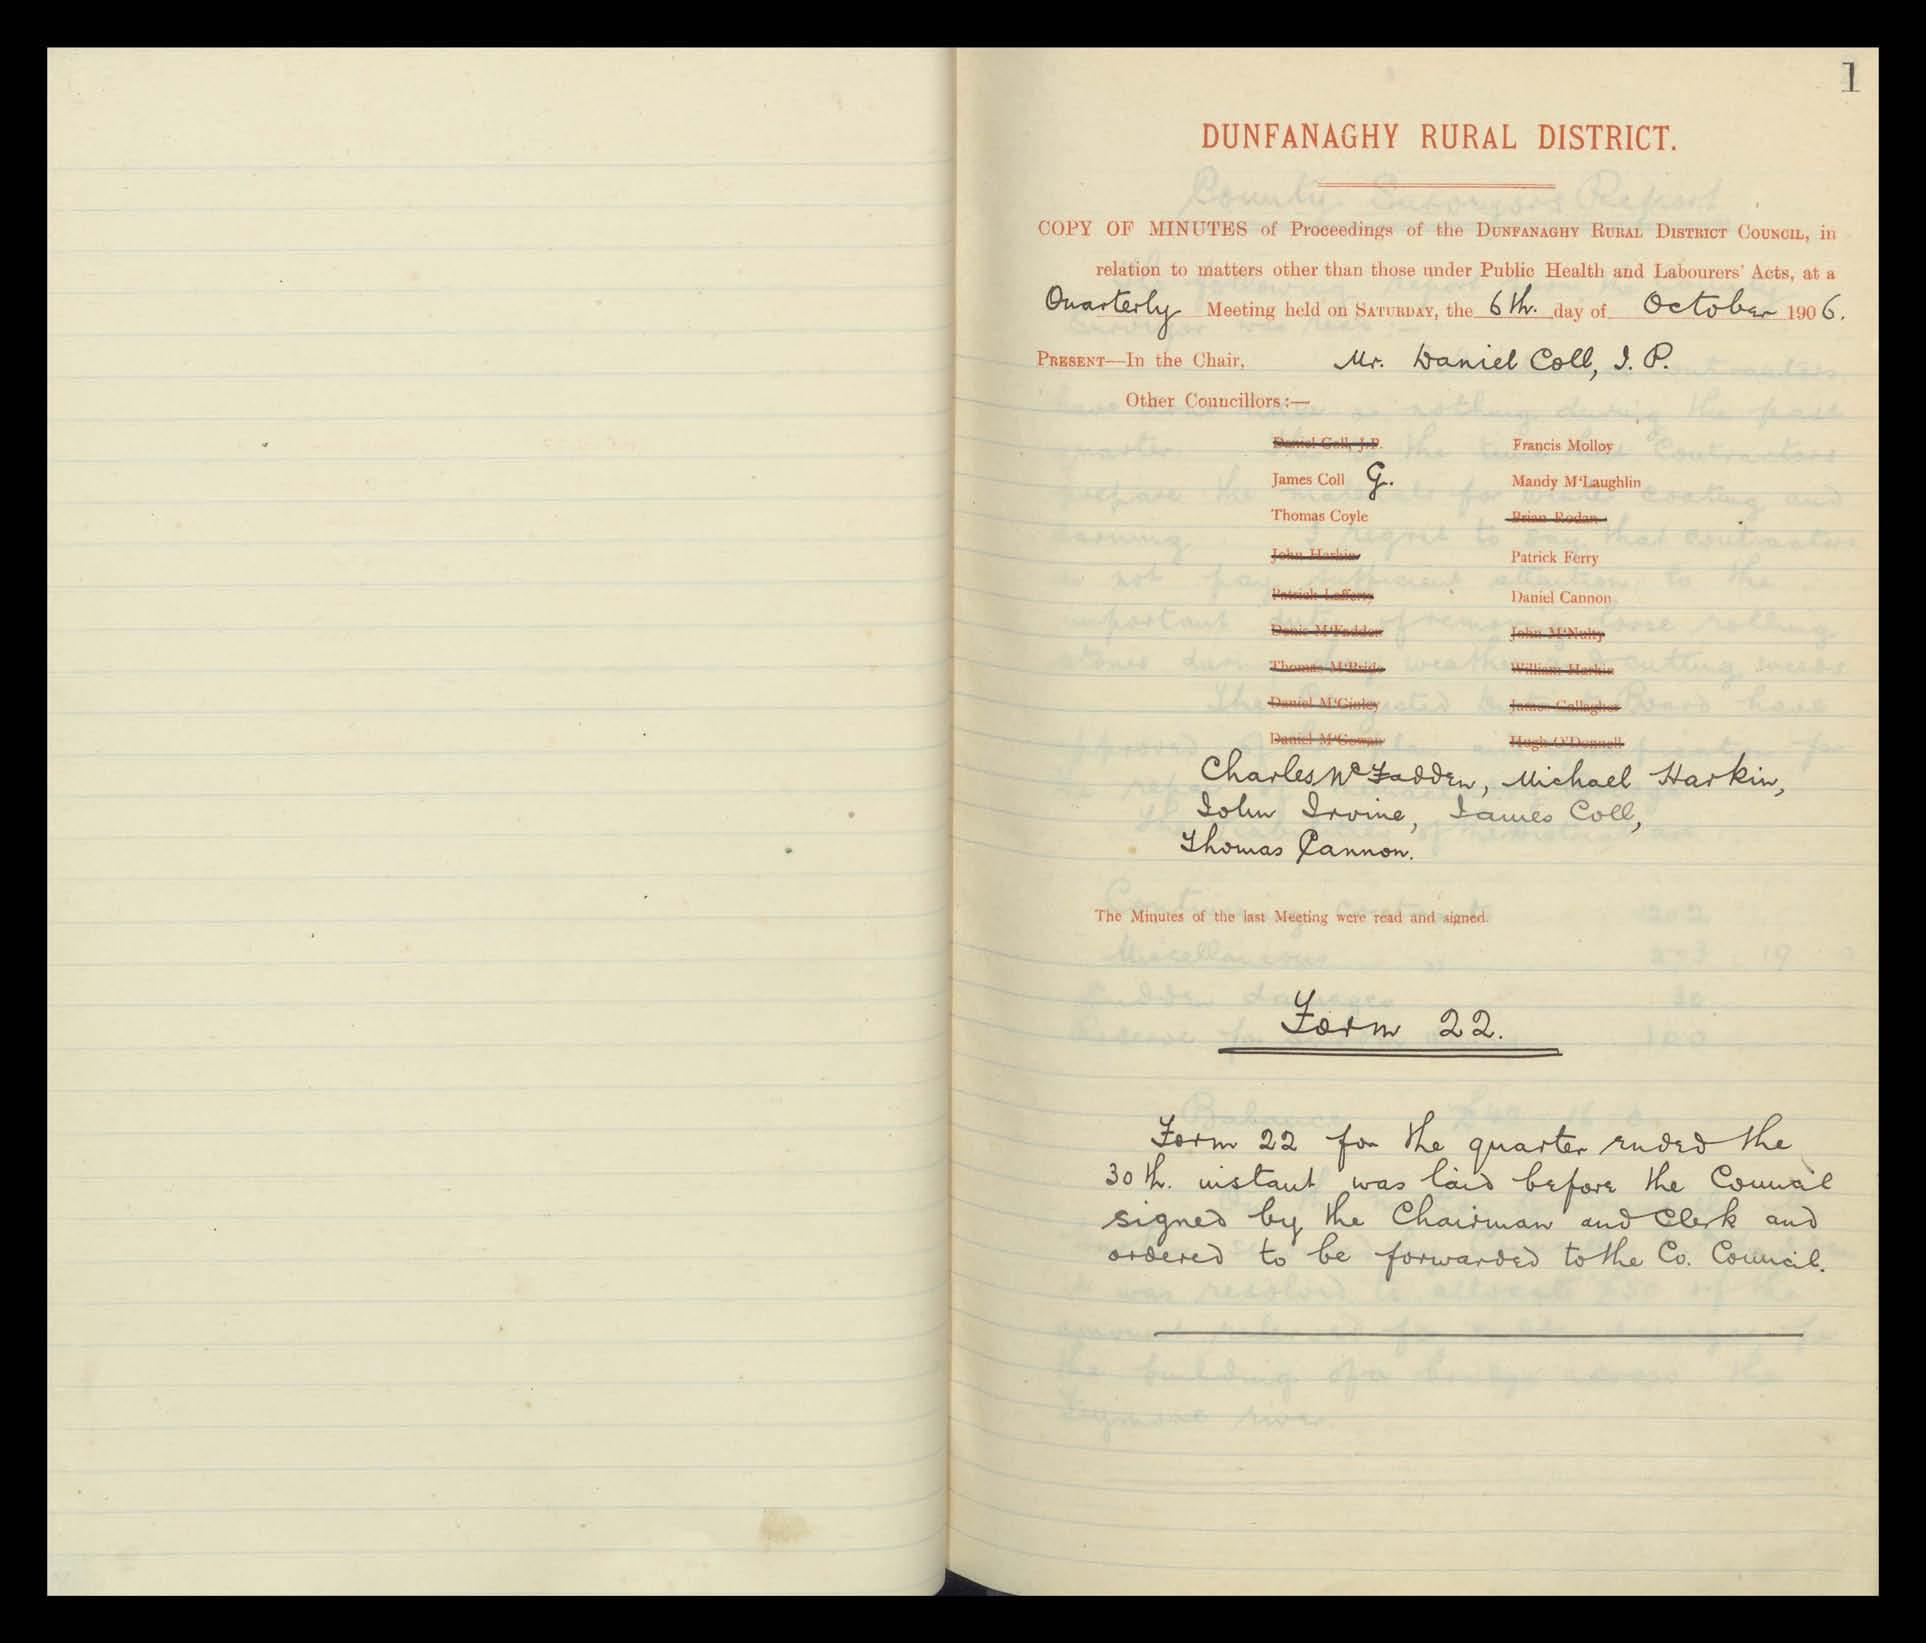 1
DUNFANAGHY RURAL DISTRICT.
COPY OF MINUTES of Proceedings of the DUNFANAGHY RURAL DISTRICT COUNCIL, in
relation to matters other than those under Public Health and Labourers' Acts, at a
Quarterly Meeting held on SATURDAY, the 6th. day of October 1906.
PRESENT—In the Chair, Mr. Daniel Coll, J. P.
Other Councillors:—
Daniel Coll, J.P. Francis Molloy
James Coll G. Mandy M'Laughlin
Thomas Coyle Brian Rodan
John Harkin Patrick Ferry
Patrick Lafferty Daniel Cannon
Denis M'Fadden John M'Nulty
Thomas M'Bride William Harkin
Daniel M'Ginley James Gallagher
Daniel M'Gowan Hugh O'Donnell
Charles McFadden, Michael Harkin,
John Irvine, James Coll,
Thomas Cannon.
The Minutes of the last Meeting were read and signed.
Form 22.
Form 22 for the quarter ended the
30th. instant was laid before the Council
signed by the Chairman and Clerk and
ordered to be forwarded to the Co. Council.